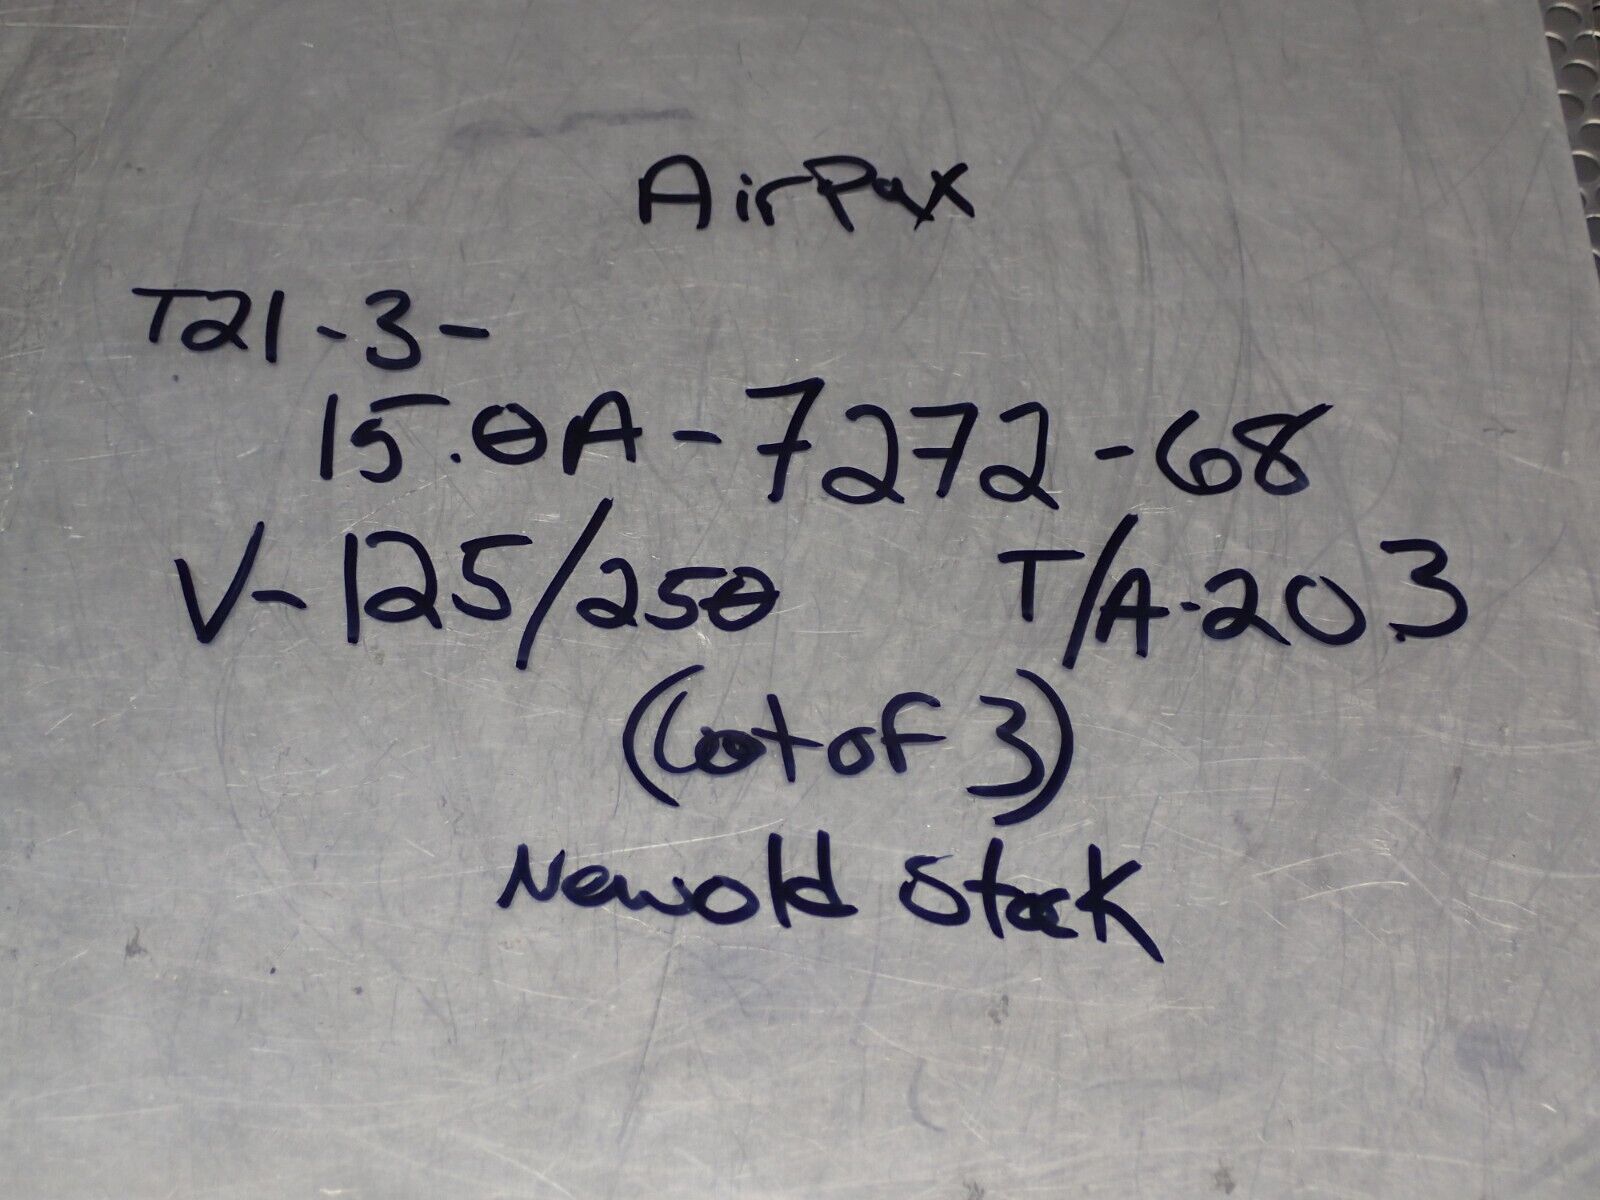 AirPax
T21-3-
15.0A-7272-68
V-125/250 T/A-20.3
(Lot of 3)
New old Stock